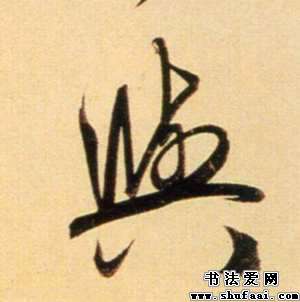 與
书法爱网
www.shufaai.com